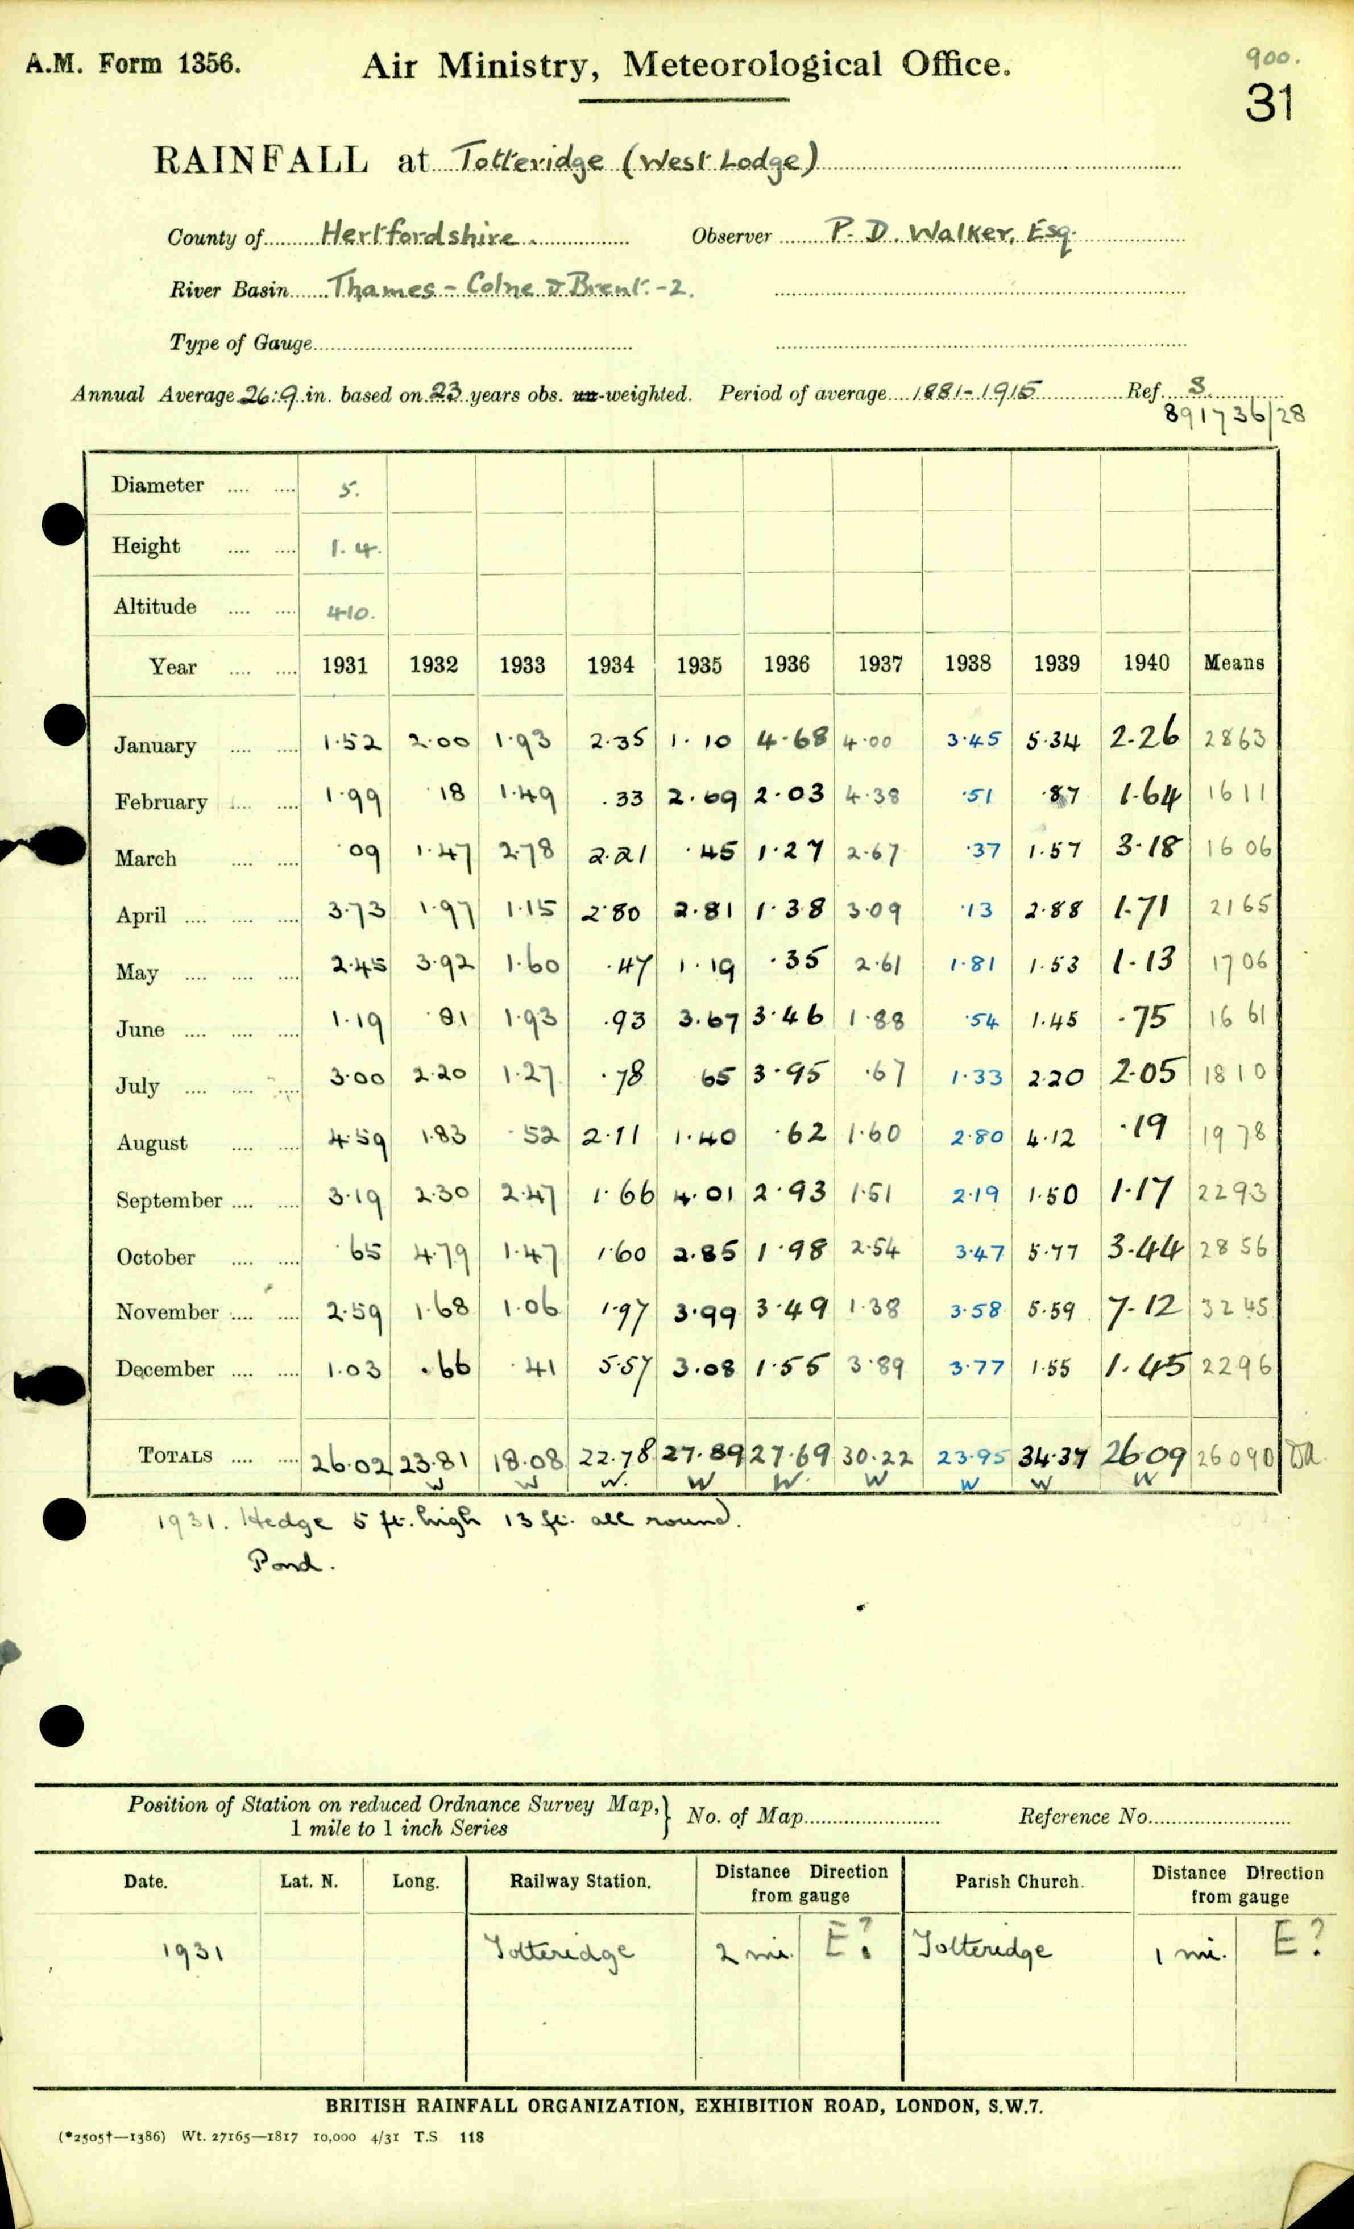 A.M. Form 1356. Air Ministry, Meteorological Office. 900.
31
RAINFALL at Totteridge (West Lodge)
County of Hertfordshire. Observer P. D. Walker, Esq.
River Basin Thames - Colne & Brent. - 2.
Type of Gauge
Annual Average 26.9 in. based on 23 years obs. un-weighted. Period of average 1881-1915 Ref. S.
891736/28
Diameter 5.
Height 1.4.
Altitude 410.
Year 1931 1932 1933 1934 1935 1936 1937 1938 1939 1940 Means
January 1.52 2.00 1.93 2.35 1.10 4.68 4.00 3.45 5.34 2.26 2863
February 1.99 .18 1.49 .33 2.69 2.03 4.38 .51 .87 1.64 1611
March .09 1.47 2.78 2.21 .45 1.27 2.67 .37 1.57 3.18 1606
April 3.73 1.97 1.15 2.80 2.81 1.38 3.09 .13 2.88 1.71 2165
May 2.45 3.92 1.60 .47 1.19 .35 2.61 1.81 1.53 1.13 1706
June 1.19 .81 1.93 .93 3.67 3.46 1.88 .54 1.45 .75 1661
July 3.00 2.20 1.27 .78 65 3.95 .67 1.33 2.20 2.05 1810
August 4.59 1.83 .52 2.11 1.40 .62 1.60 2.80 4.12 .19 1978
September 3.19 2.30 2.47 1.66 4.01 2.93 1.51 2.19 1.50 1.17 2293
October .65 4.79 1.47 1.60 2.85 1.98 2.54 3.47 5.77 3.44 2856
November 2.59 1.68 1.06 1.97 3.99 3.49 1.38 3.58 5.59 7.12 3245
December 1.03 .66 .41 5.57 3.08 1.55 3.89 3.77 1.55 1.45 2296
TOTALS 26.02 23.81 18.08 22.78 27.89 27.69 30.22 23.95 34.37 26.09 26090
W W W. W W. W W W W
1931. Hedge 5 ft. high 13 ft. all round.
Pond.
Position of Station on reduced Ordnance Survey Map, 1 mile to 1 inch Series } No. of Map Reference No.
Date. Lat. N. Long. Railway Station. Distance Direction from gauge Parish Church. Distance Direction from gauge
1931 Totteridge 2 mi. E? Totteridge 1 mi. E?
BRITISH RAINFALL ORGANIZATION, EXHIBITION ROAD, LONDON, S.W.7.
(*2505†—1386) Wt. 27165—1817 10,000 4/31 T.S 118